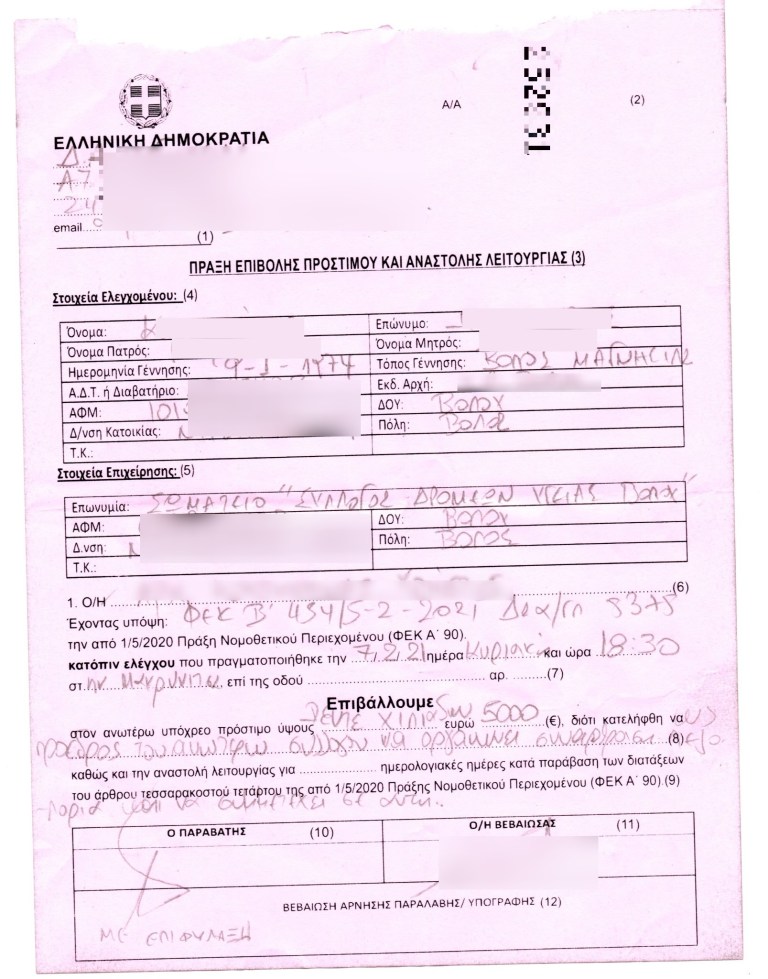 Α/Α (2)
ΕΛΛΗΝΙΚΗ ΔΗΜΟΚΡΑΤΙΑ
email
(1)
ΠΡΑΞΗ ΕΠΙΒΟΛΗΣ ΠΡΟΣΤΙΜΟΥ ΚΑΙ ΑΝΑΣΤΟΛΗΣ ΛΕΙΤΟΥΡΓΙΑΣ (3)
Στοιχεία Ελεγχομένου: (4)
Όνομα: Επώνυμο:
Όνομα Πατρός: Όνομα Μητρός:
Ημερομηνία Γέννησης: 9-1-1974 Τόπος Γέννησης: ΒΟΛΟΣ ΜΑΓΝΗΣΙΑΣ
Α.Δ.Τ. ή Διαβατήριο: Εκδ. Αρχή:
ΑΦΜ: ΔΟΥ: ΒΟΛΟΥ
Δ/νση Κατοικίας: Πόλη: ΒΟΛΟΣ
Τ.Κ.:
Στοιχεία Επιχείρησης: (5)
Επωνυμία: ΣΩΜΑΤΕΙΟ "ΣΥΛΛΟΓΟΣ ΔΡΟΜΕΩΝ ΥΓΕΙΑΣ ΒΟΛΟΥ"
ΑΦΜ: ΔΟΥ: ΒΟΛΟΥ
Δ.νση: Πόλη: ΒΟΛΟΣ
Τ.Κ.:
1. Ο/Η (6)
Έχοντας υπόψη: ΦΕΚ Β' 454/5-2-2021
την από 1/5/2020 Πράξη Νομοθετικού Περιεχομένου (ΦΕΚ Α΄ 90).
κατόπιν ελέγχου που πραγματοποιήθηκε την 7,2,21 ημέρα Κυριακή και ώρα 18:30
στην Μακρυνίτσα, επί της οδού αρ. (7)
Επιβάλλουμε
στον ανωτέρω υπόχρεο πρόστιμο ύψους Πέντε χιλιάδων ευρώ 5000 (€), διότι κατελήφθη να ως
πρόεδρος του ανωτέρω συλλόγου να οργανώνει συνάθροιση (8)
καθώς και την αναστολή λειτουργίας για ημερολογιακές ημέρες κατά παράβαση των διατάξεων
του άρθρου τεσσαρακοστού τετάρτου της από 1/5/2020 Πράξης Νομοθετικού Περιεχομένου (ΦΕΚ Α΄ 90).(9)
και να συμμετέχει σε αυτή.
Ο ΠΑΡΑΒΑΤΗΣ (10) Ο/Η ΒΕΒΑΙΩΣΑΣ (11)
ΒΕΒΑΙΩΣΗ ΑΡΝΗΣΗΣ ΠΑΡΑΛΑΒΗΣ/ ΥΠΟΓΡΑΦΗΣ (12)
ΜΕ ΕΠΙΦΥΛΑΞΗ